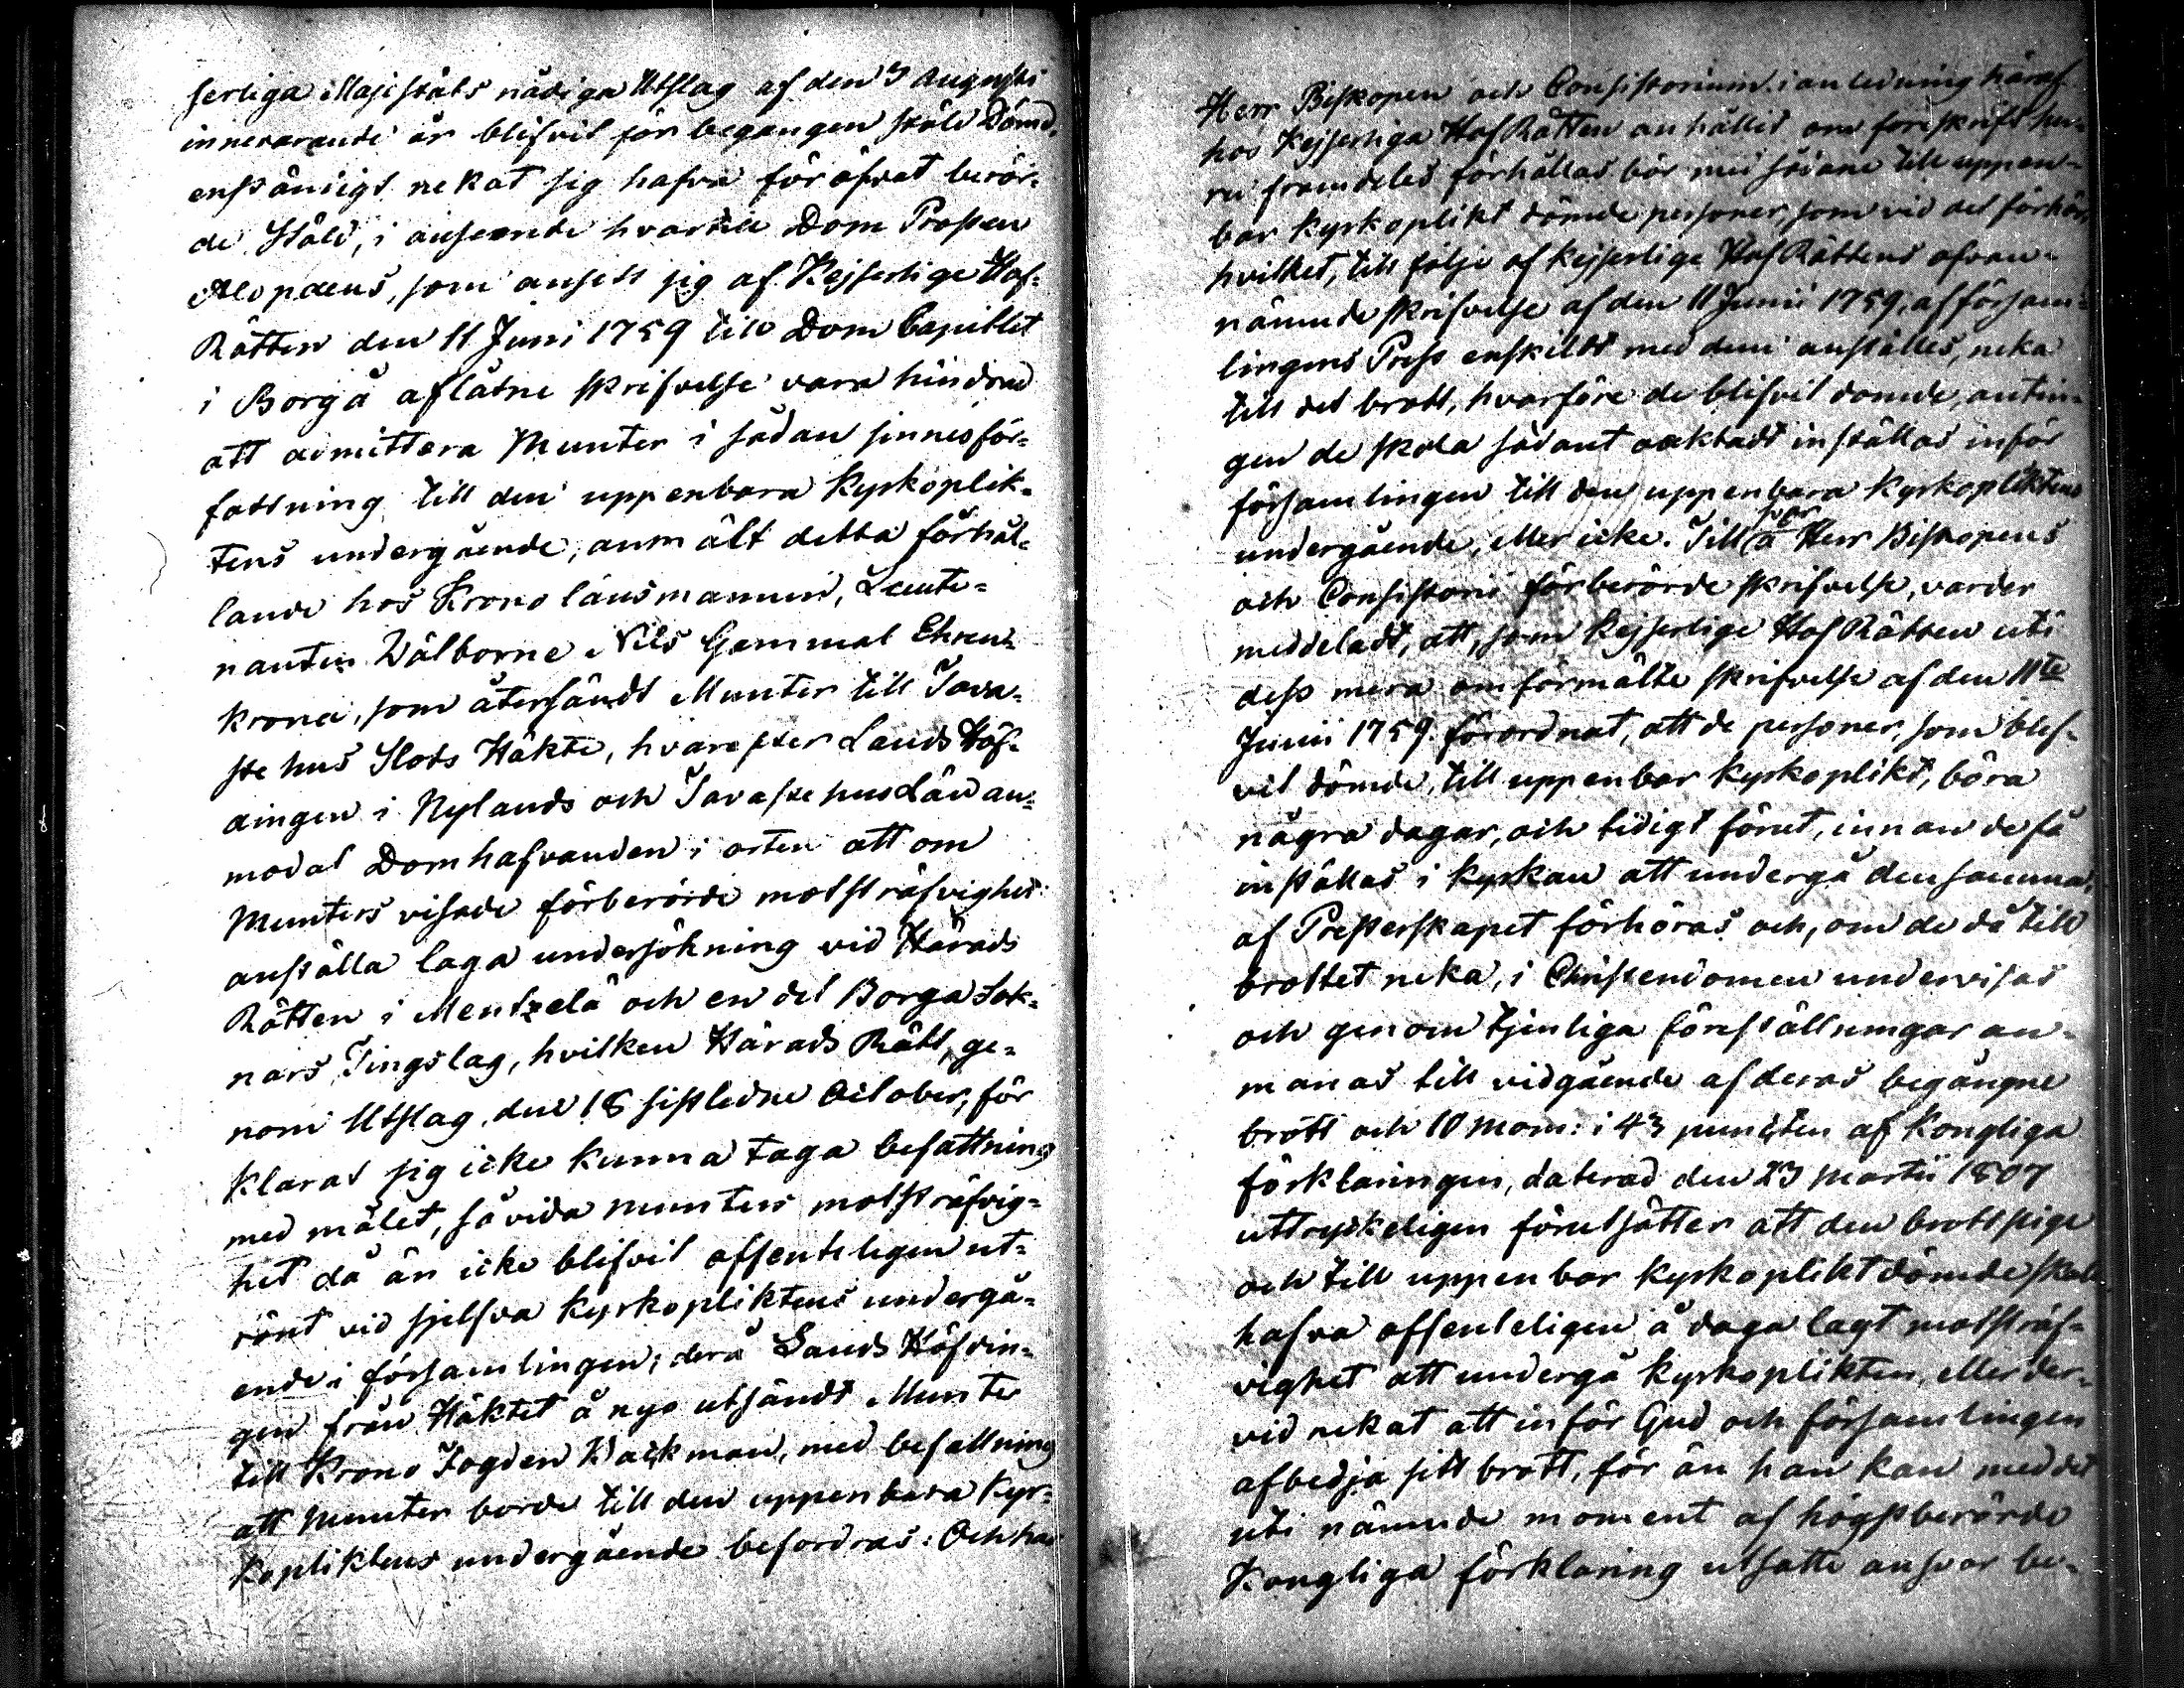 serliga Majestäts nådiga Utslag af den 3 Augusti
innevarande år blifvit för begången stöld Dömd,
enständigt nekat sig hafva föröfvat berör-
de Stöld, i anseende hvartill Dom Prosten
Alopæus, som ansett sig af Kejserlige Hof-
Rätten den 11 Juni 1759 till Dom Capitlet
i Borgå aflåtne skrifvelse vara hindrad
att admittera Munter i sådan sinnesför-
fattning till den uppenbara Kyrkoplik-
tens undergående, anmält detta förhål-
lande hos Krono länsmannen, Leute-
nanten Välborne Nils Gammal Ehren-
krona, som återsändt Munter till Tava-
ste hus Slots Häkte, hvarefter Lands Höf-
dingen i Nylands och Tavastehus Län an-
modat Domhafvanden i orten att om
Munters visade förberörde motsträfvighet
anställa laga undersökning vid Härads
Rätten i Mentzelä och en del Borgå Sok-
nars Tingslag, hvilken Härads Rätt, ge-
nom Utslag den 18 sistledne October, för
klarat sig icke kunna taga befattning
med målet, så vida Munters motsträfvig-
het då än icke blifvit offenteligen ut-
rönt vid sjelfva Kyrkopliktens undergå-
ende i församlingen; derå Lands Höfdin-
gen från Häktet å nyo utsändt Munter
till Krono Fogden Wackman, med befallning
att Munter borde till den uppenbara Kyr-
kopliktens undergående befordras: Och har
Herr Biskopen och Consistorium i anledning häraf
hos Kejserliga Hof Rätten anhållit om föreskrift hu-
ru framdeles förhållas bör med sådane till uppen-
bar Kyrkoplikt dömde personer, som vid det förhör,
hvilket, till följe af Kejserlige Hof Rättens ofvan-
nämnde skrifvelse af den 11 Junii 1759, af försam-
lingens Prest enskildt med dem anställes, neka
till det brott, hvarföre de blifvit dömde, antin-
gen de skola sådant oaktadt inställas inför
församlingen till den uppenbara Kyrkopliktens
undergående, eller icke. Till svar å Herr Biskopens
och Consistorii förberörde skrifvelse, varder
meddeladt, att, som Kejserlige Hof Rätten uti
dess mera omförmälte skrifvelse af den 11te
Junii 1759. förordnat, att de personer, som blif-
vit dömde till uppenbar Kyrkoplikt, böra
några dagar, och tidigt förut, innan de få
inställas i kyrkan att undergå densamma,
af Presterskapet förhöras och, om de då till
brottet neka, i Christendomen undervisas
och genom tjenliga föreställningar an-
manas till vidgående af deras begångne
brott och 10 mom: i 43 puncten af Kongliga
förklaringen, daterad den 23 Martii 1807
uttryckeligen förutsätter att den brottslige
och till uppenbar Kyrkoplikt dömde skall
hafva offenteligen å daga lagt motsträf-
vighet att undergå Kyrkoplikten, eller der-
vid nekat att inför Gud och församlingen
afbedja sitt brott, för än han kan med det
uti nämnde moment af högstberörde
Kongliga förklaring utsatte ansvar be-